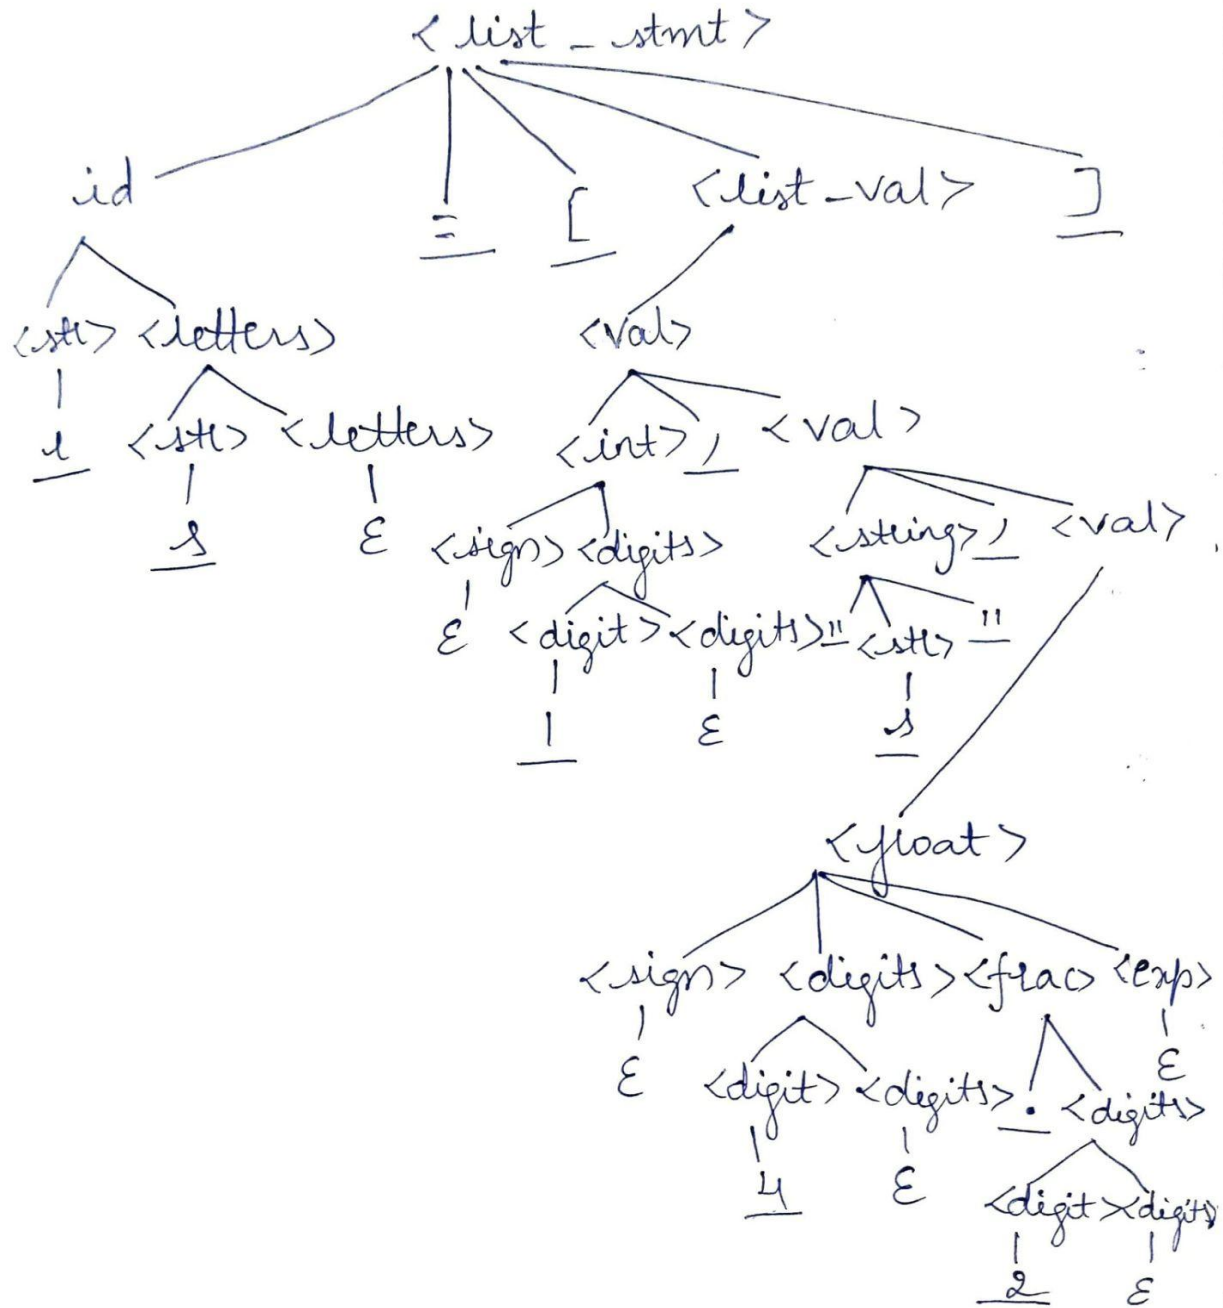 <list_stmt>
id = [ <list_val> ]
<str> <letters> <val>
l <str> <letters> <int> , <val>
s ε <sign> <digits> <string> , <val>
ε <digit> <digits> " <str> "
1 ε s
<float>
<sign> <digits> <frac> <exp>
ε <digit> <digits> . <digits> ε
4 ε <digit> <digits>
2 ε